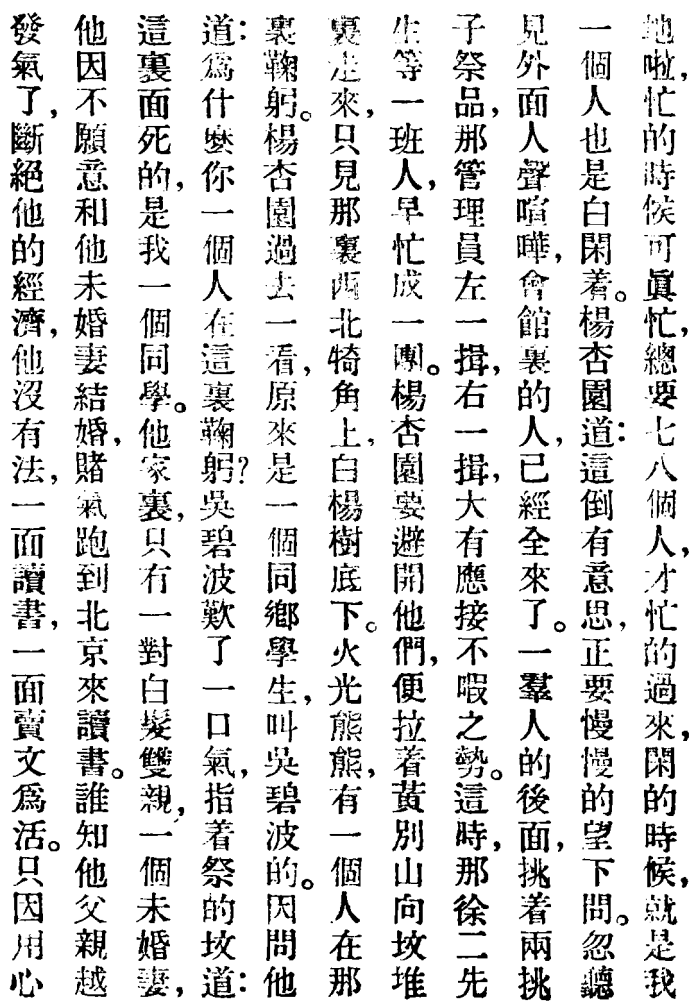 地啦，忙的時候可眞忙，總要七八個人，才忙的過來，閑的時候，就是我
一個人也是白閑着。楊杏園道：這倒有意思，正要慢慢的望下問。忽聽
見外面人聲喧嘩，會館裏的人，已經全來了。一羣人的後面，挑着兩挑
子祭品，那管理員左一揖，右一揖，大有應接不暇之勢。這時，那徐二先
生等一班人，早忙成一團。楊杏園要避開他們，便拉着黃別山向坟堆
裏走來，只見那裏西北犄角上，白楊樹底下。火光熊熊，有一個人在那
裏鞠躬。楊杏園過去一看，原來是一個同鄉學生，叫吳碧波的。因問他
道：爲什麽你一個人在這裏鞠躬？吳碧波歎了一口氣，指着祭的坟道：
這裏面死的，是我一個同學。他家裏，只有一對白髮雙親，一個未婚妻，
他因不願意和他未婚妻結婚，賭氣跑到北京來讀書。誰知他父親越
發氣了，斷絕他的經濟，他沒有法，一面讀書，一面賣文爲活。只因用心